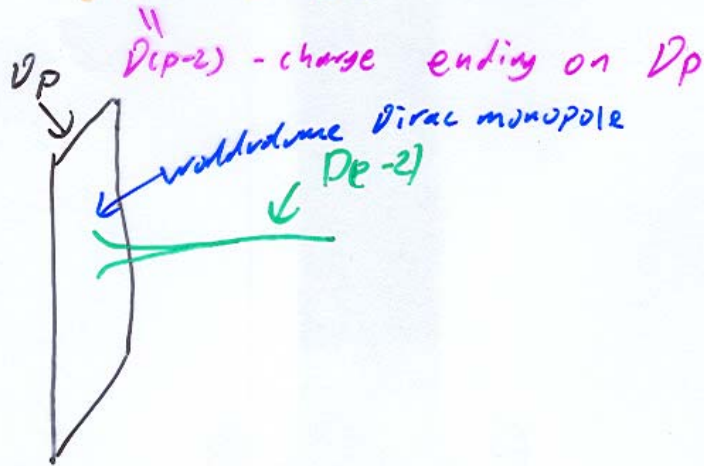 "
D(p-2) - charge ending on Dp
Dp
worldvolume Dirac monopole
D(p-2)